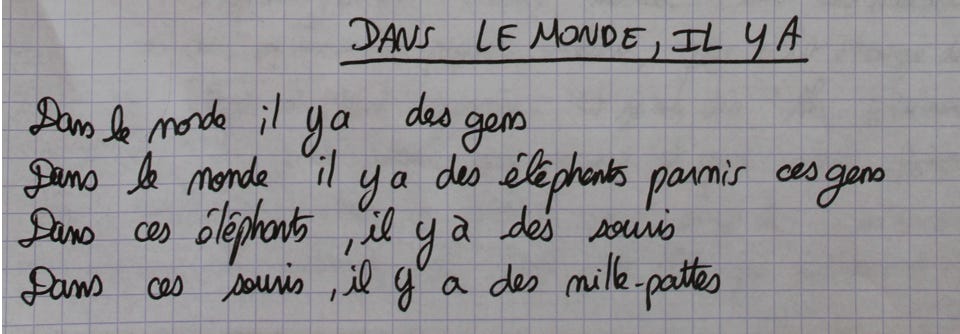 DANS LE MONDE, IL Y A
Dans le monde il y a des gens
Dans le monde il y a des éléphants parmis ces gens
Dans ces éléphants, il y a des souris
Dans ces souris, il y a des mille-pattes